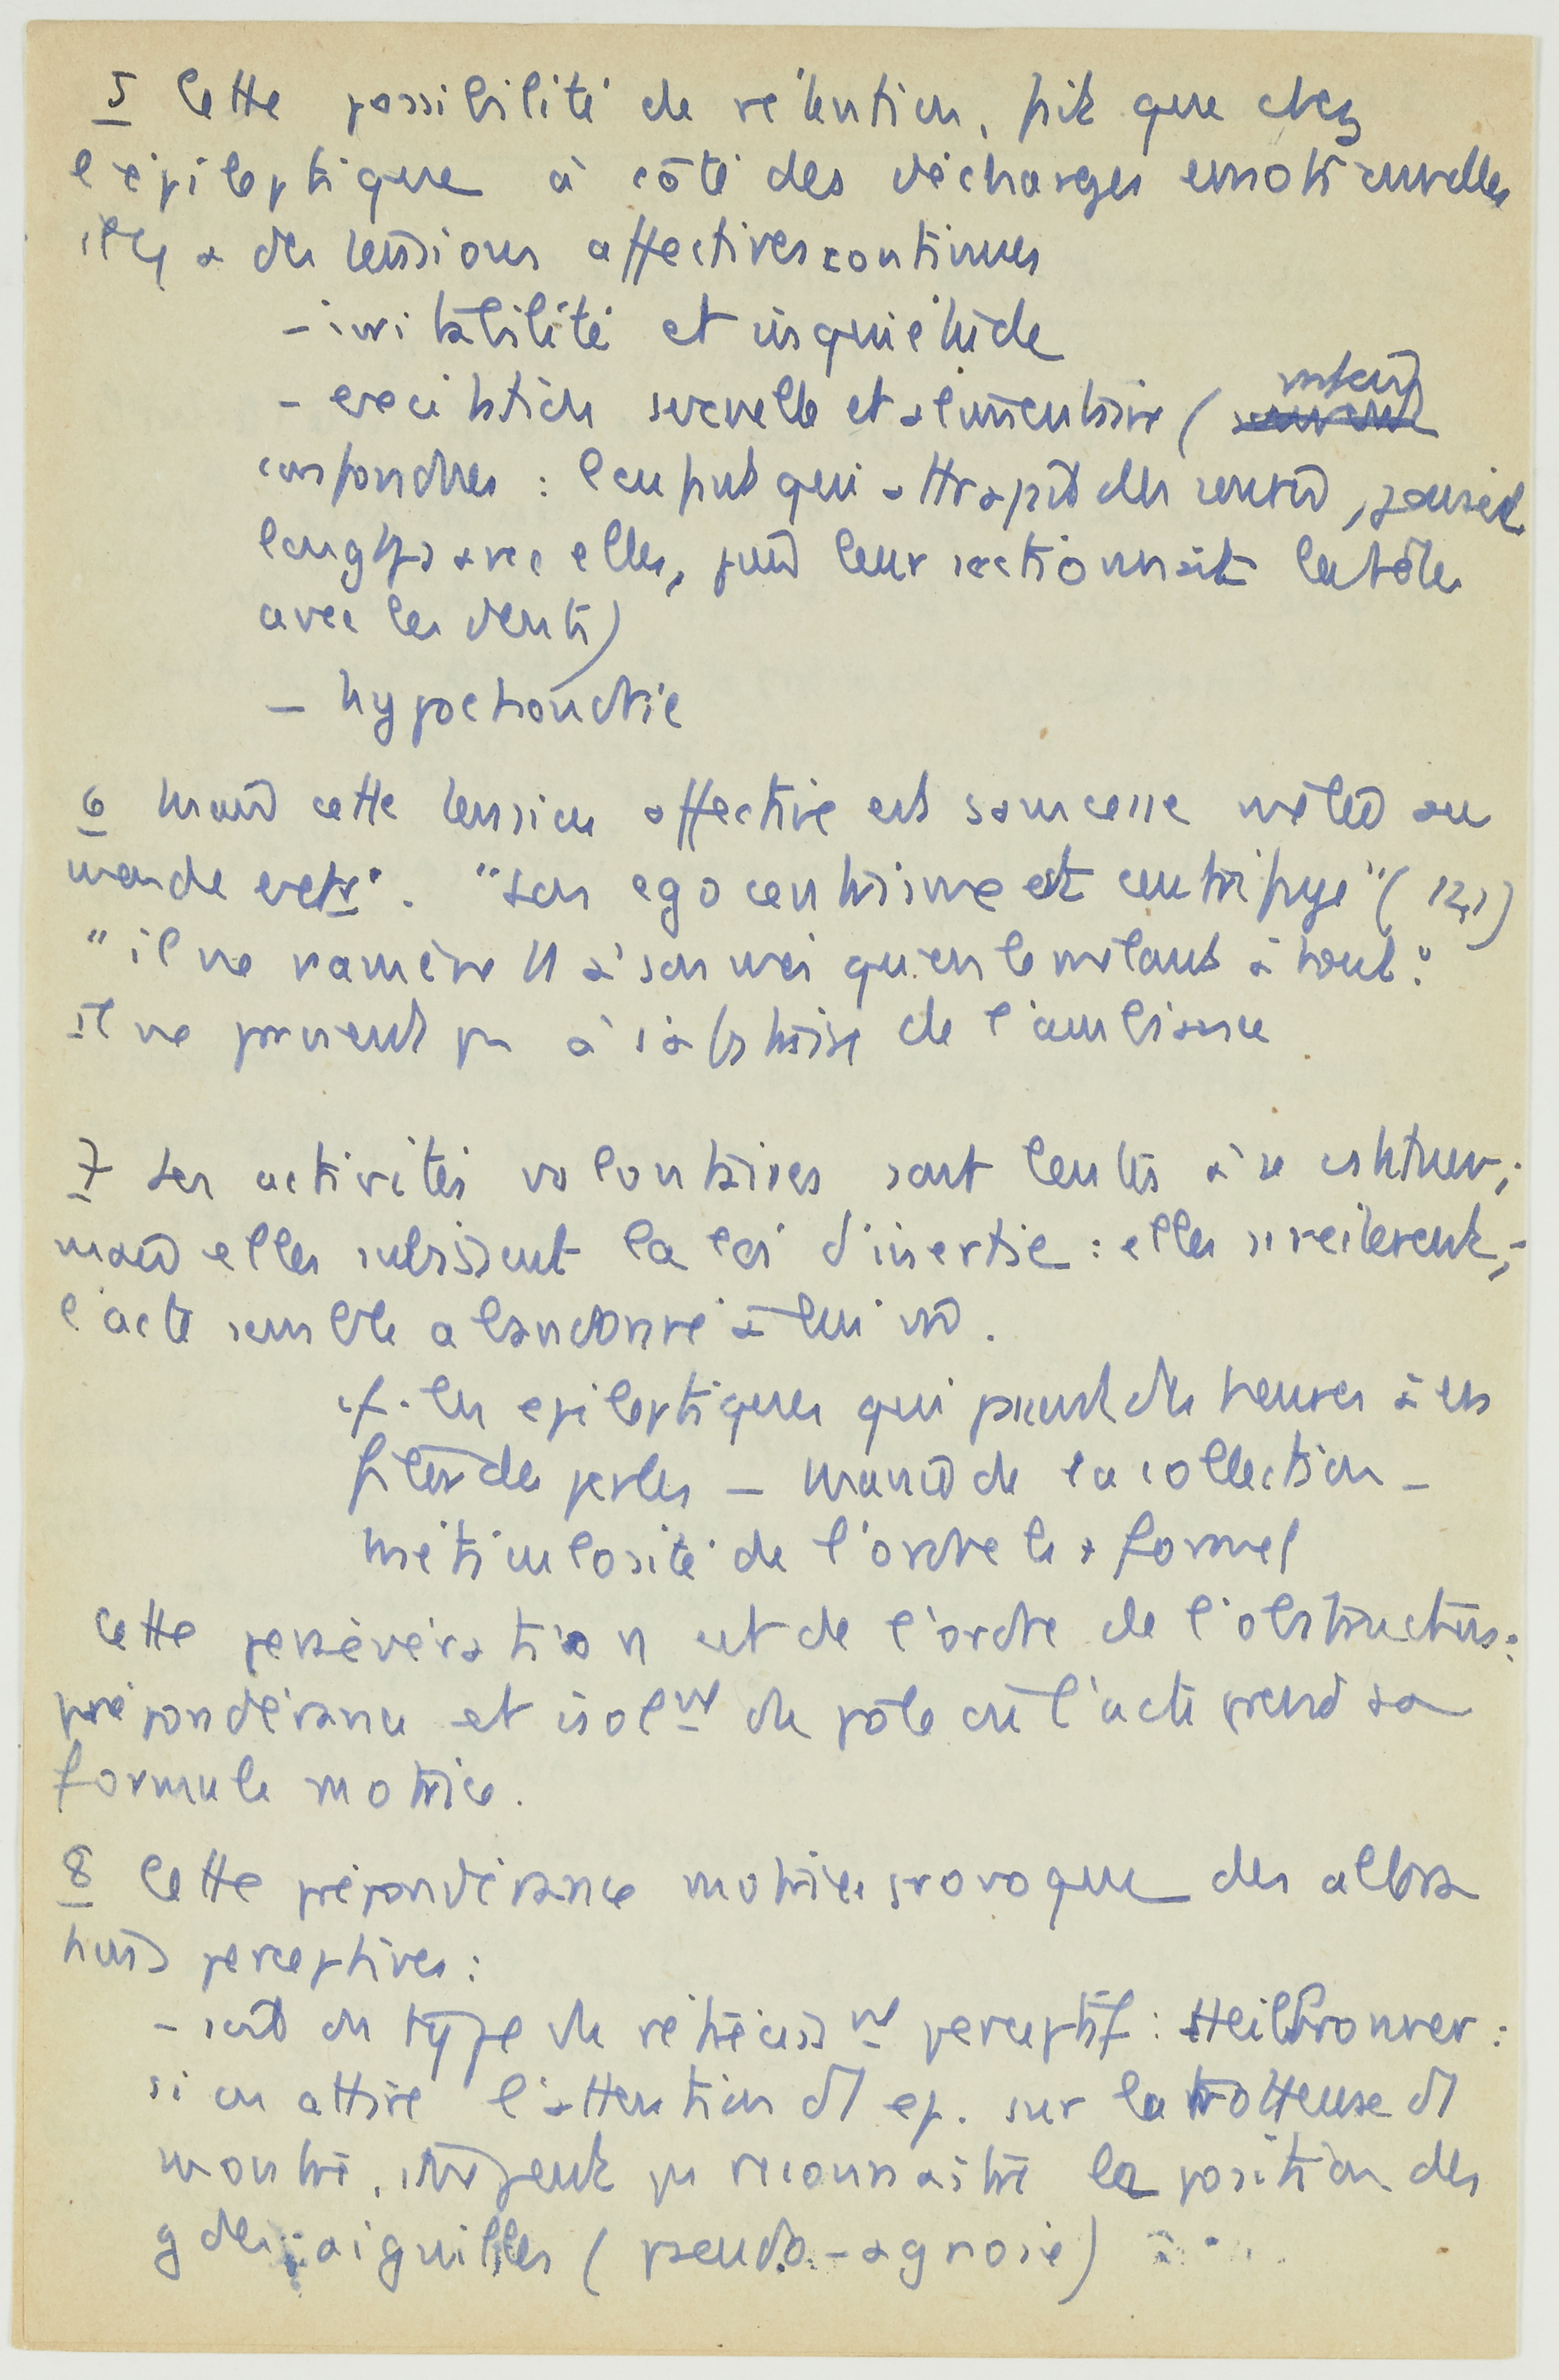 5 Cette possibilité de rétention, fait que chez
l'épileptique à côté des décharges émotionnelles
il y a des tensions affectives continues
- irritabilité et inquiétude
- excitation sexuelle et alimentaire (
confondues : l'enfant qui attrapait des souris, jouait
longtps avec elles, puis leur sectionnait la tête
avec les dents)
- hypochondrie
6 Mais cette tension affective est sans cesse mêlée au
monde extr. "Son egocentrisme est centrifuge" (121)
"il ne ramène tt à son moi qu'en le mêlant à tout".
Il ne parvient pas à s'abstraire de l'ambiance
7 Ses activités volontaires sont lentes à se instituer ;
mais elles subissent la loi d'inertie : elles se réitèrent, -
l'acte semble abandonné à lui m̂.
cf. les epileptiques qui passent des heures à en
filer des perles - manie de la collection -
méticulosité de l'ordre le + formel
Cette persévération est de l'ordre de l'obstruction :
prépondérance et isolmt du pôle où l'acte prend sa
formule motrice.
8 Cette prépondérance motrice provoque des altéra
tions perceptives :
- soit du type du rétréciss mt perceptif : Heilbronner :
si on attire l'attention d'1 ep. sur la trotteuse d'1
montre, il ne peut pas reconnaître la position des
gdes aiguilles (pseudo-agnosie)